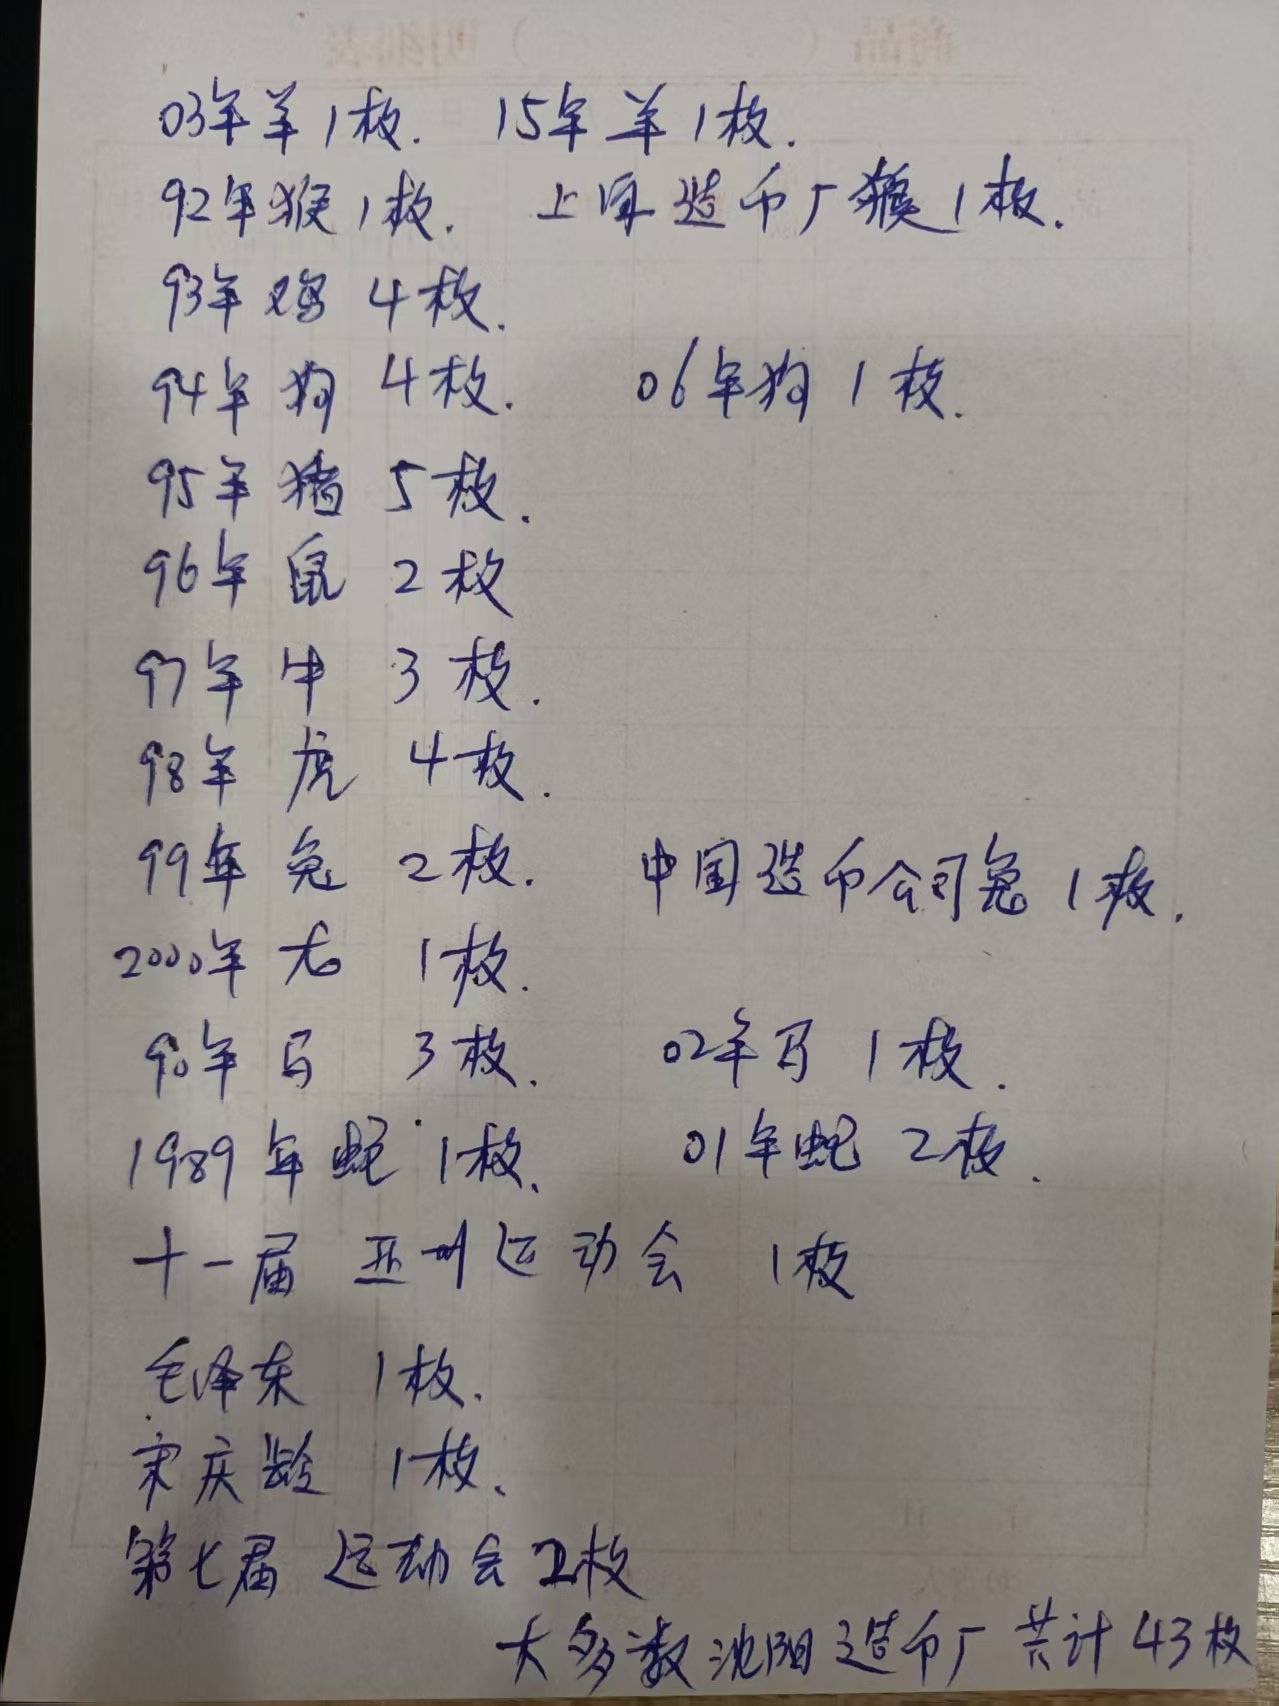 03年羊1枚. 15年羊1枚.
92年猴1枚. 上海造币厂猴1枚.
93年鸡 4枚.
94年狗 4枚. 06年狗 1枚.
95年猪 5枚.
96年鼠 2枚
97年牛 3枚.
98年虎 4枚.
99年兔 2枚. 中国造币公司兔 1枚.
2000年龙 1枚.
90年马 3枚. 02年马 1枚.
1989年蛇 1枚. 01年蛇 2枚.
十一届 亚州运动会 1枚
毛泽东 1枚.
宋庆龄 1枚.
第七届 运动会 2枚
大多数沈阳造币厂 共计43枚